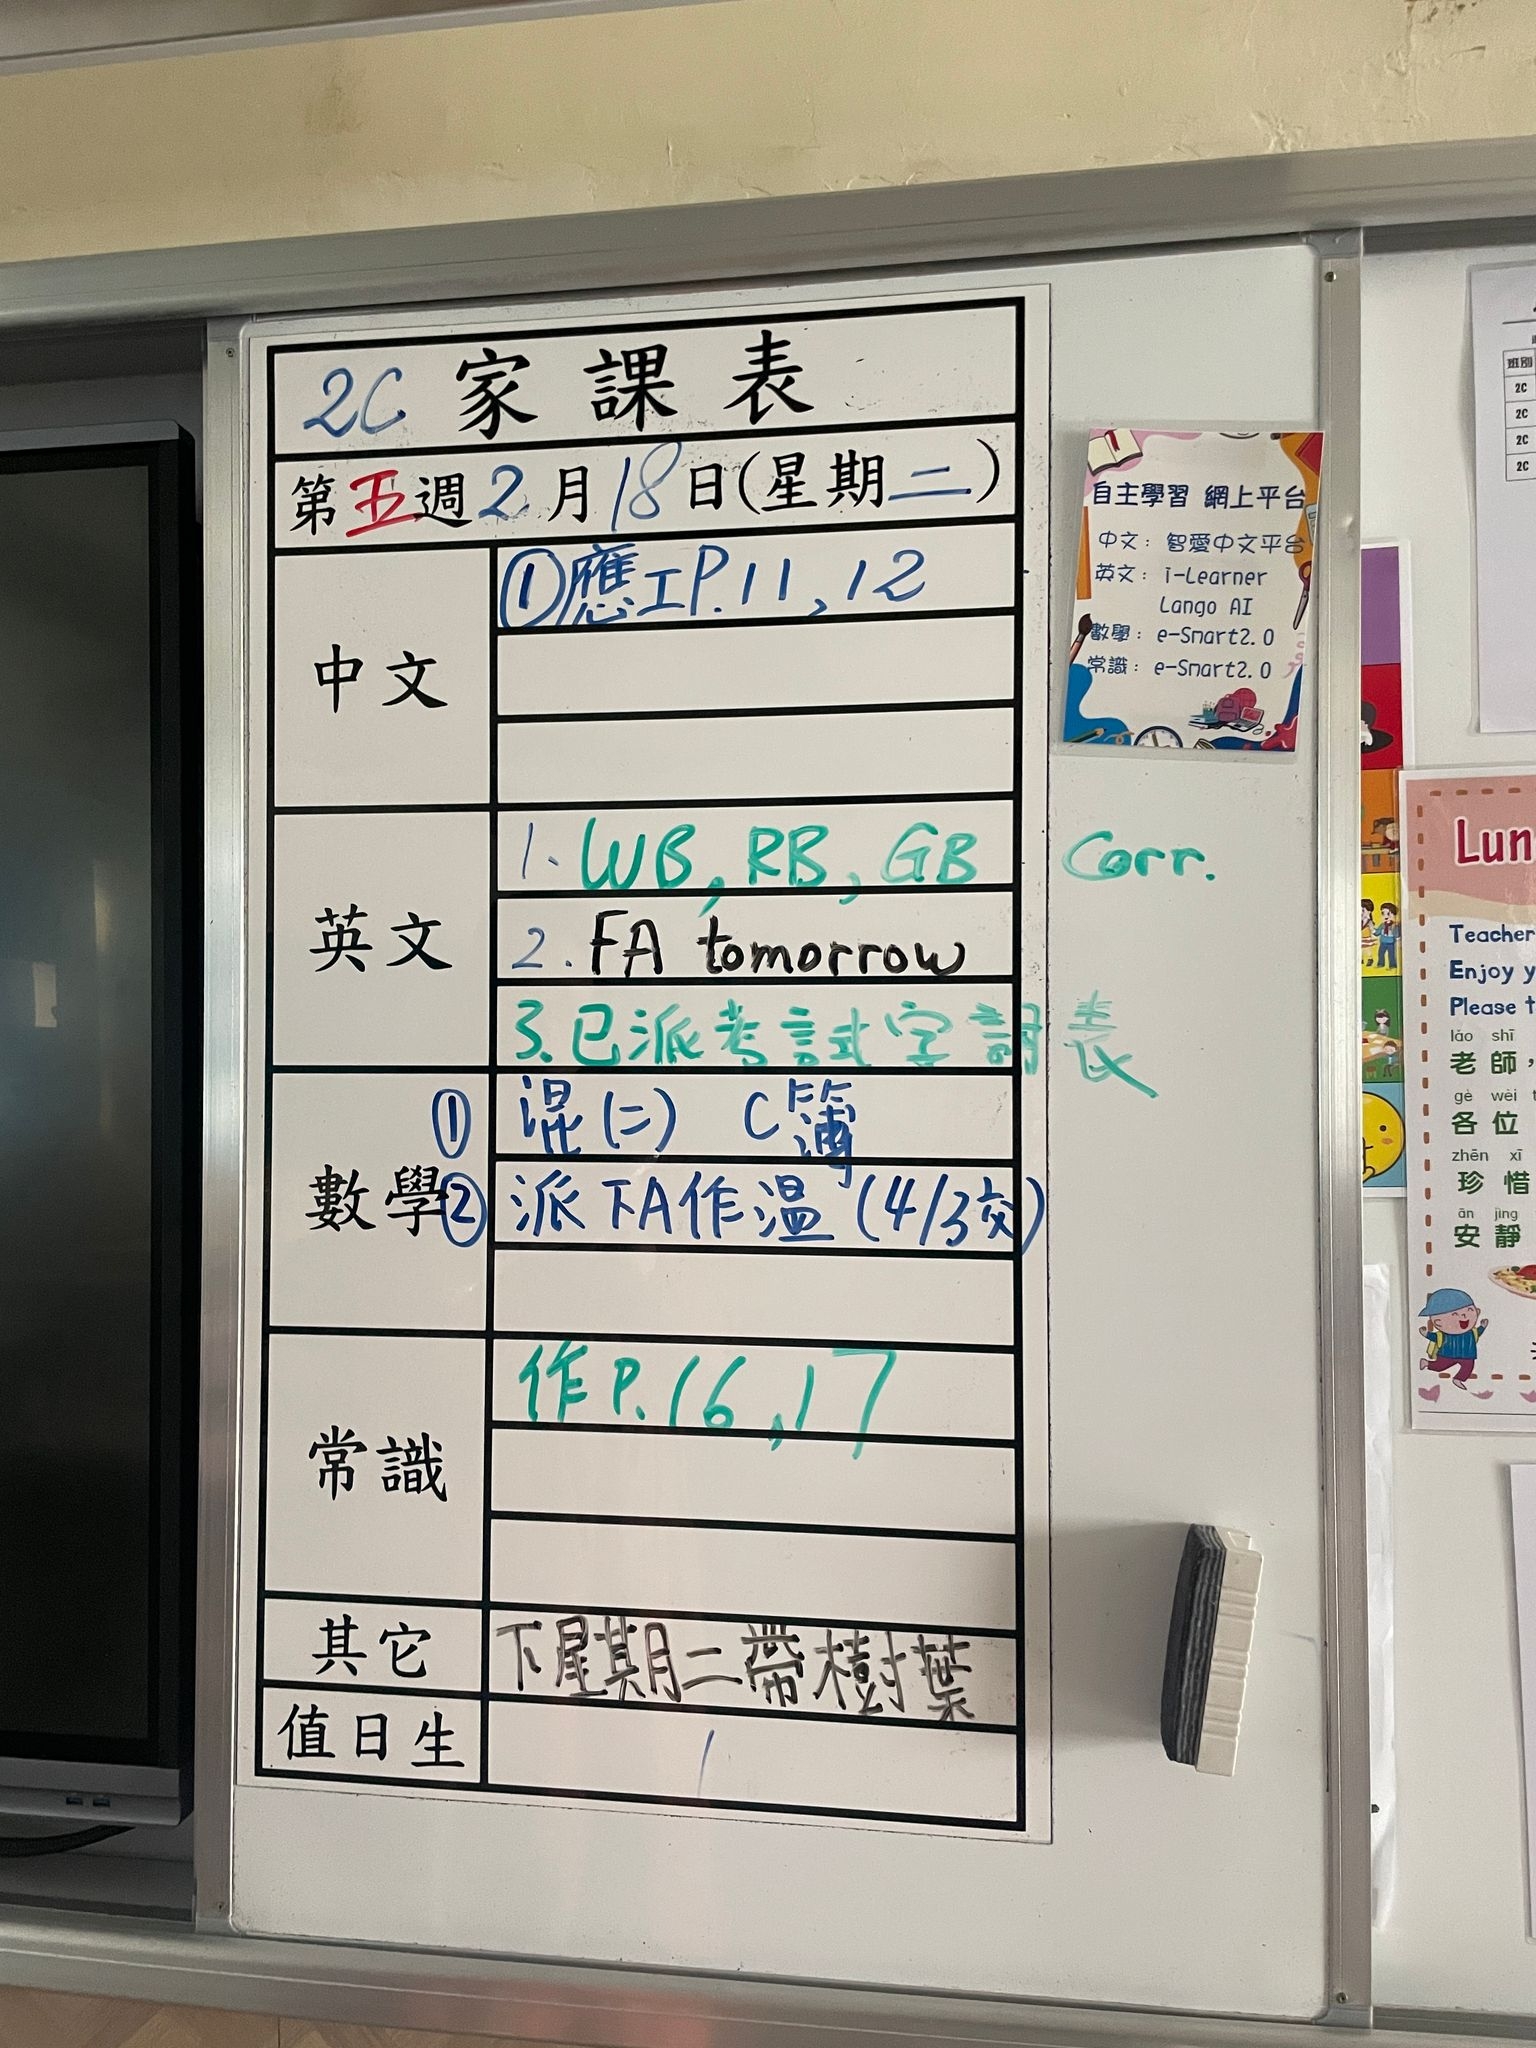 2C 家課表
第五週2月18日(星期二)
中文
①應工P.11,12
英文
1. WB, RB, GB Corr.
2. FA tomorrow
3. 已派考試字詞表
數學
① 混(二) C簿
② 派下A作溫(4/3交)
常識
作P.16,17
其它
下星期二帶樹葉
值日生
1
自主學習 網上平台
中文：智愛中文平台
英文：i-Learner
Lango AI
數學：e-Smart2.0
常識：e-Smart2.0
班別
2C
2C
2C
2C
Lun
Teacher
Enjoy y
Please t
lǎo shī
老師，
gè wèi
各位
zhēn xī
珍惜
ān jìng
安靜